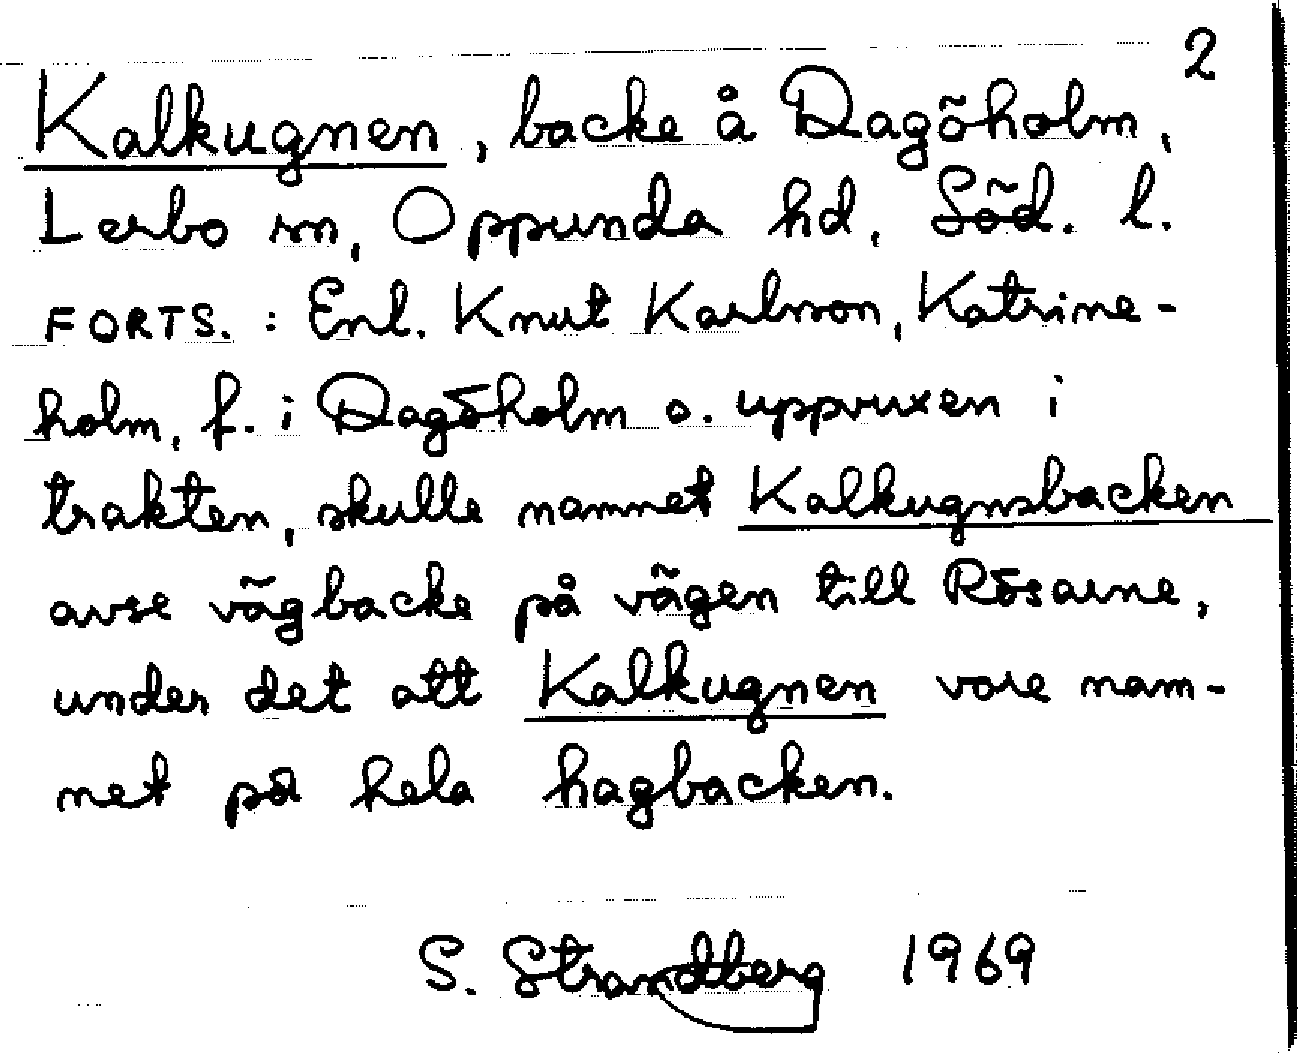 2
Kalkugnen, backe å Dagöholm,
Lerbo sn, Oppunda hd, Söd. l.
FORTS. : Enl. Knut Karlsson, Katrine-
holm, f. i Dagöholm o. uppvuxen i
trakten, skulle namnet Kalkugnsbacken
avse vägbacke på vägen till Rösarne,
under det att Kalkugnen vore nam-
net på hela hagbacken.
S. Strandberg 1969